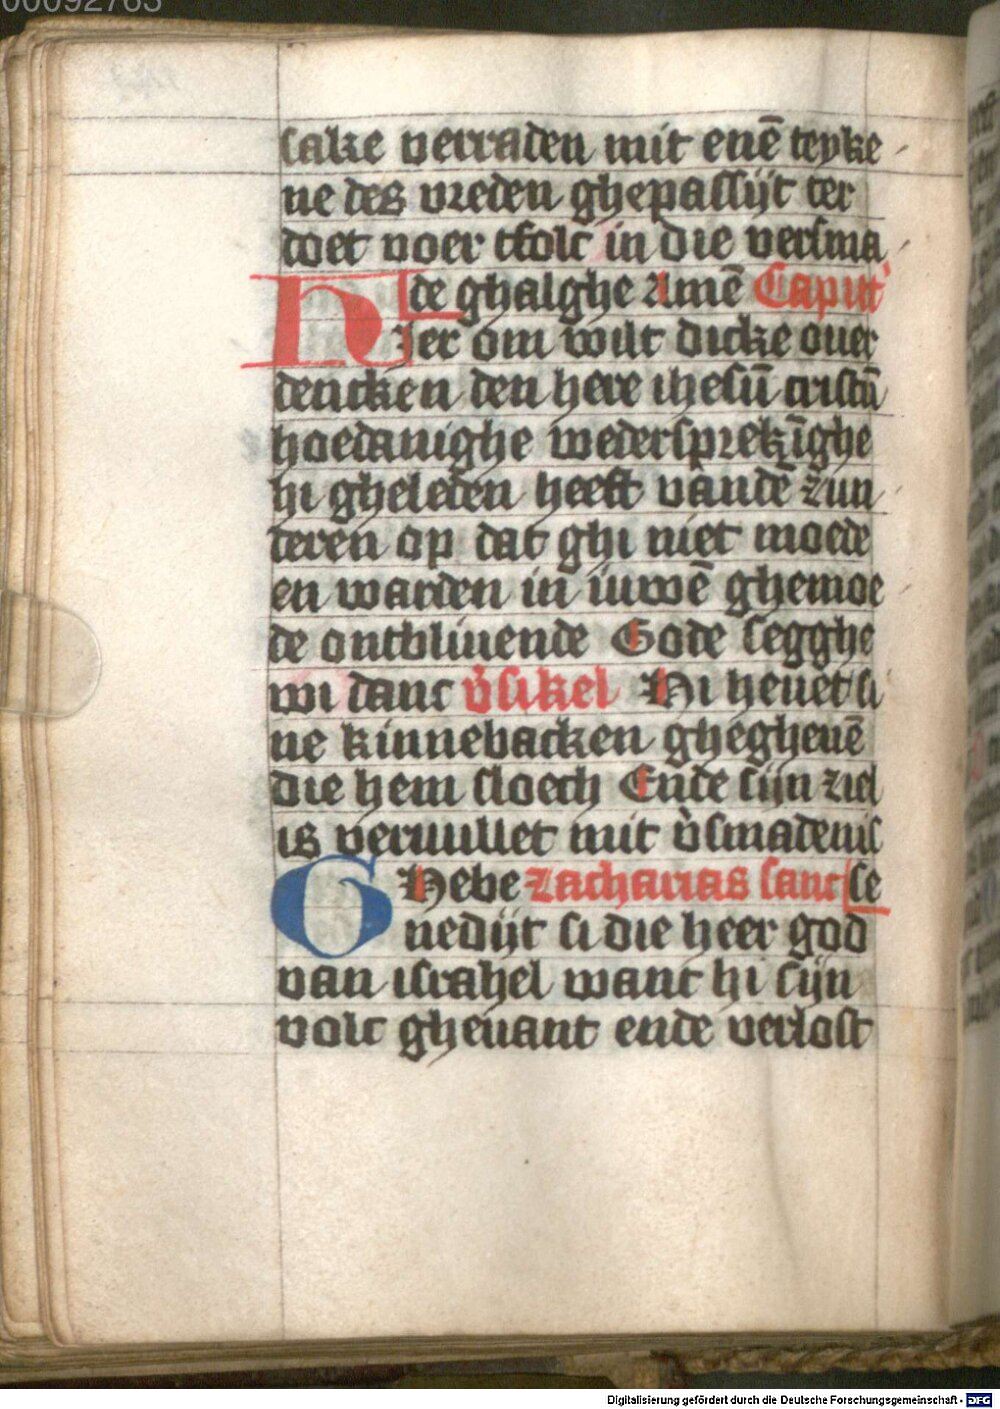 00092763
sake verraden mit enē teyke
ne des vreden ghepassijt ter
doet voer tfolc in die versma
de ghalghe Amē Capitt'
Hier om wilt dicke ouer
dencken den here ihesū cristū
hoedanighe wedersprekīghe
hi gheleden heeft vandē zun
deren op dat ghi niet moede
en warden in iuwē ghemoe
de ontbliuende Gode segghe
wi danc v̉sikel Hi heuet si
ne kinnebacken ghegheuē
die hem sloech Ende sijn ziel
is veruullet mit v̉smadenis
Ghebe zacharias sanc se
nedijt si die heer god
van israhel want hi sijn
volc gheuant ende verlost
Digitalisierung gefördert durch die Deutsche Forschungsgemeinschaft - DFG